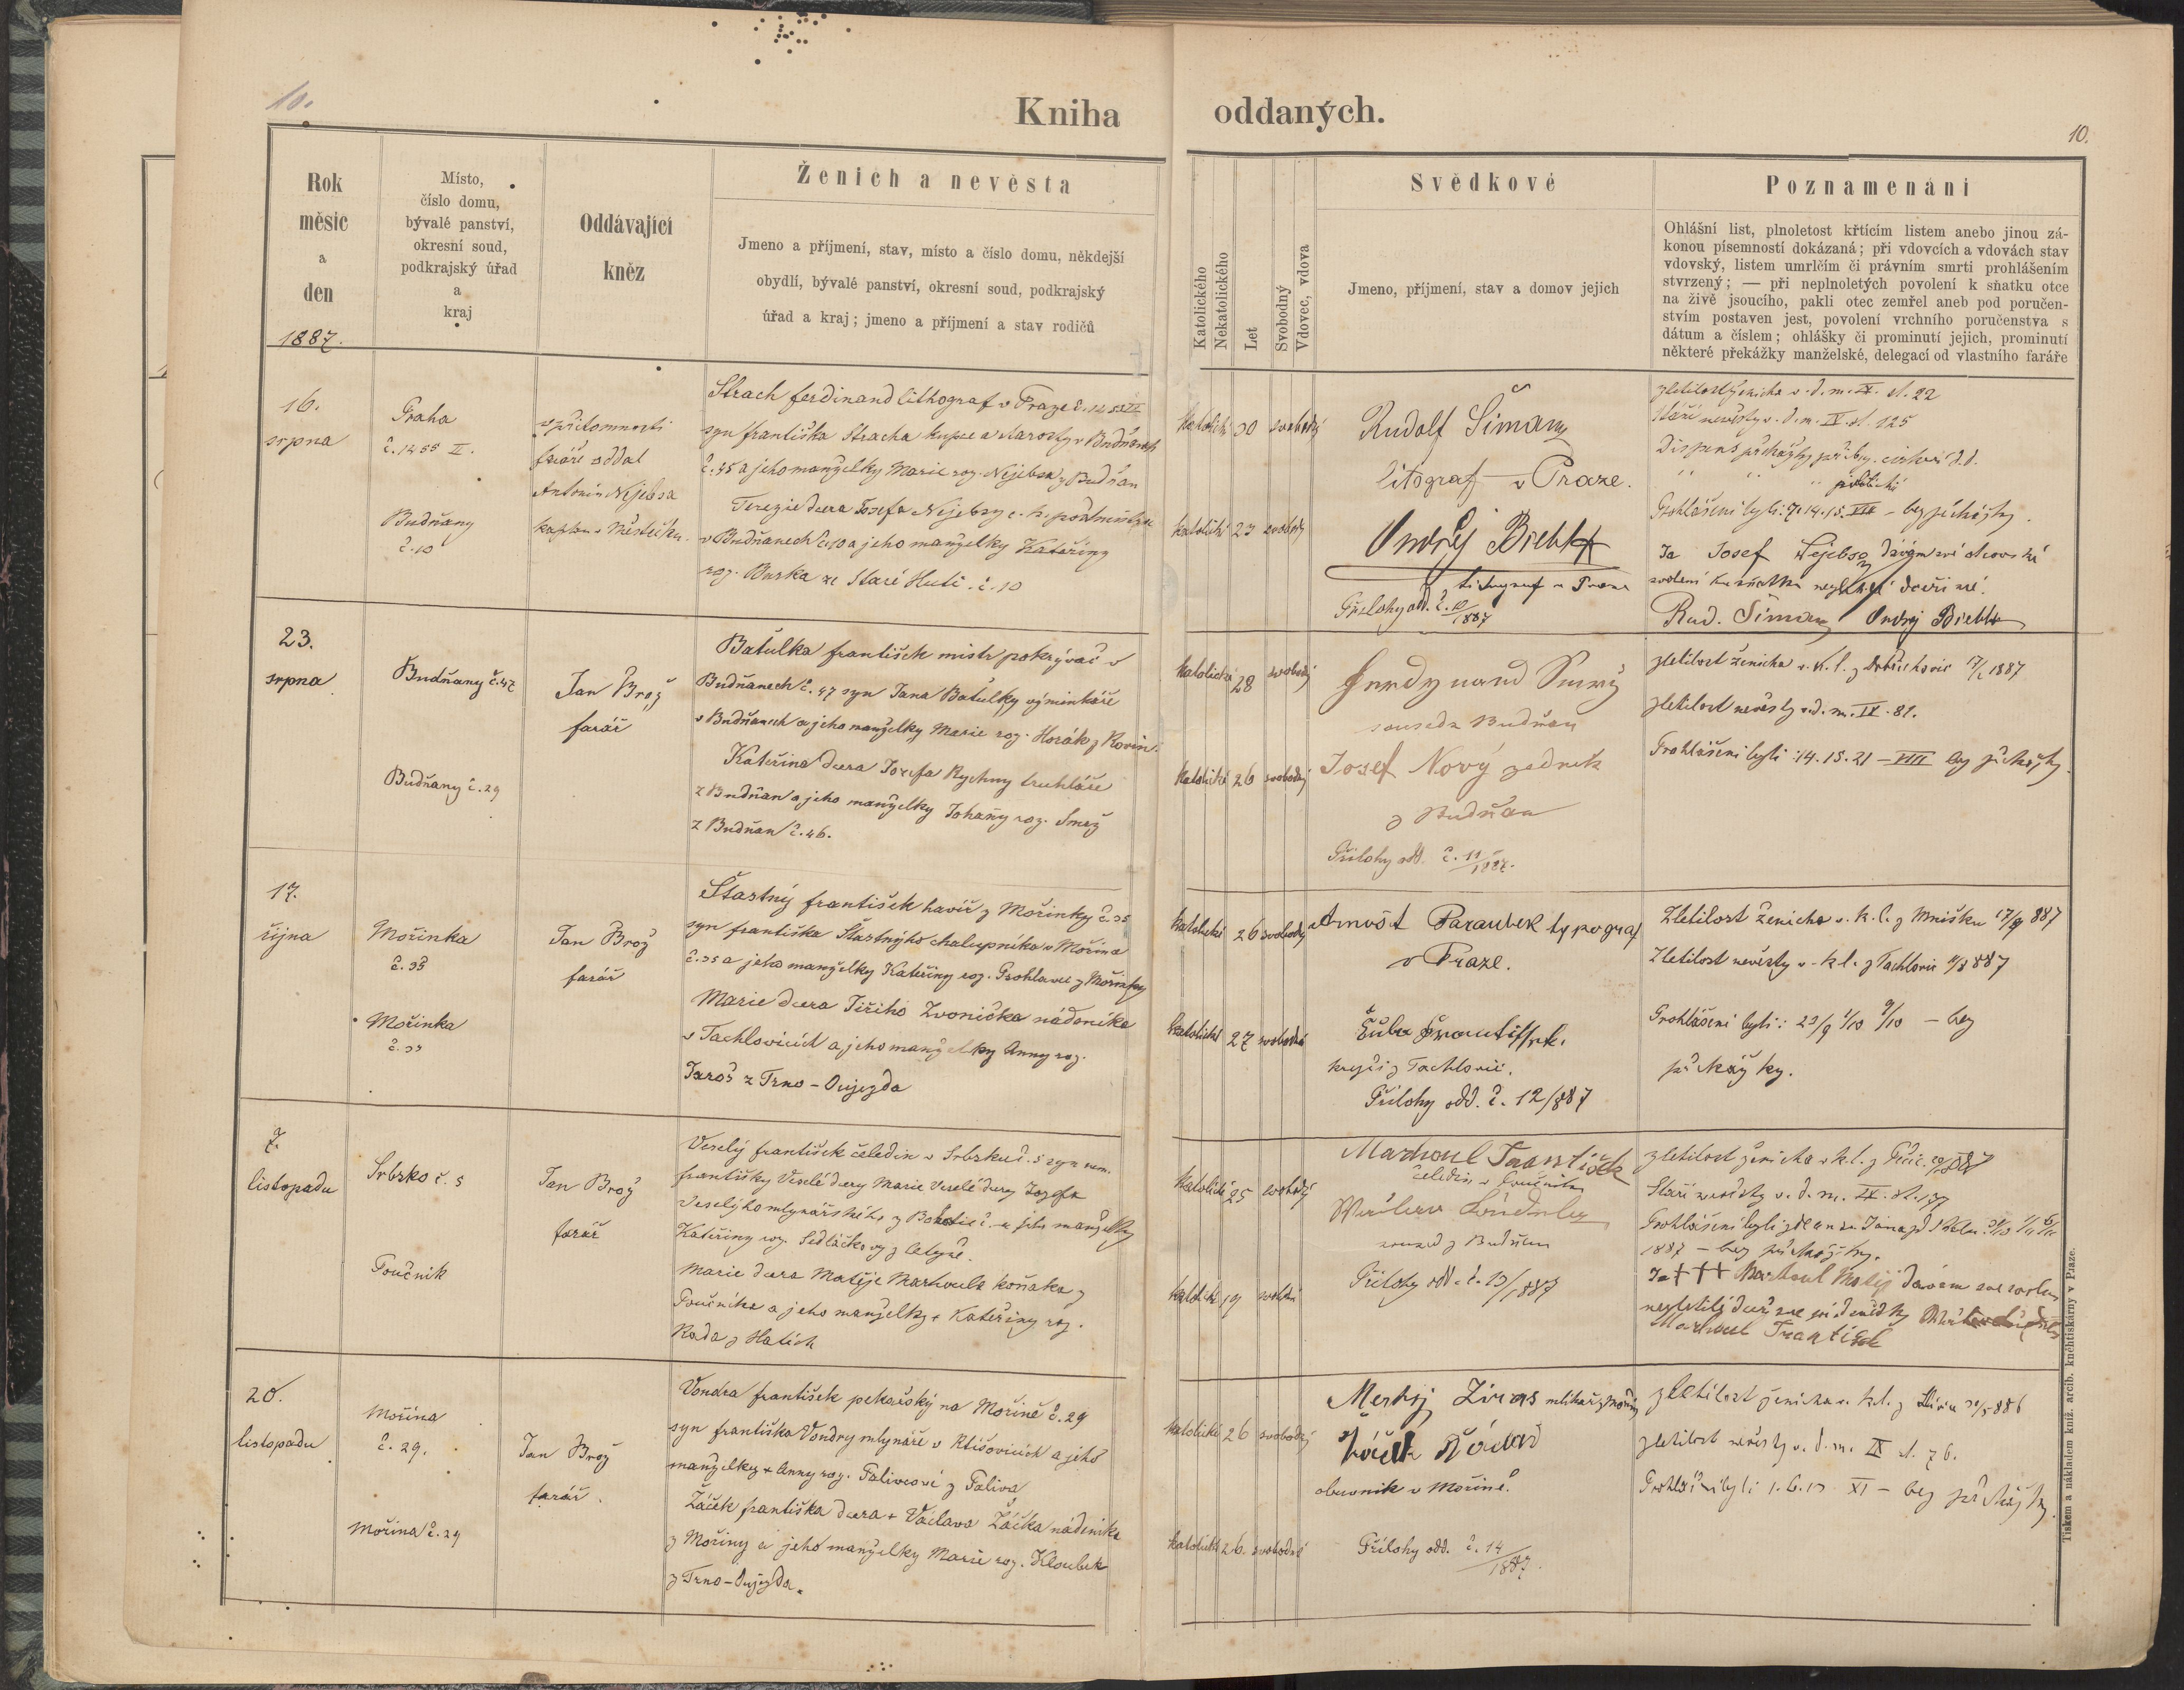 10.
Kniha oddaných.
10.
Rok
měsíc
a
den
1887.
Místo,
číslo domu,
bývalé panství,
okresní soud,
podkrajský úřad
a
kraj
Oddávající
kněz
Ženich a nevěsta
Jmeno a příjmení, stav, místo a číslo domu, někdejší
obydlí, bývalé panství, okresní soud, podkrajský
úřad a kraj; jmeno a příjmení a stav rodičů
Katolického
Nekatolického
Let
Svobodný
Vdovec, vdova
Svědkové
Jmeno, příjmení, stav a domov jejich
Poznamenání
Ohlášní list, plnoletost křtícím listem anebo jinou zá-
konou písemností dokázaná; při vdovcích a vdovách stav
vdovský, listem umrlčím či právním smrti prohlášením
stvrzený; — při neplnoletých povolení k sňatku otce
na živě jsoucího, pakli otec zemřel aneb pod poručen-
stvím postaven jest, povolení vrchního poručenstva s
dátum a číslem; ohlášky či prominutí jejich, prominutí
některé překážky manželské, delegací od vlastního faráře
16.
srpna
Praha
č. 1455 II.
Budňany
č. 10
v přítomnosti
faráře oddal
Antonín Nejebsa
kaplan v Městečku.
Strach ferdinand lithograf v Praze č. 1455 II
syn františka Stracha kupce a starosty v Budňanech
č. 45 a jeho manželky Marie roz. Nejebsa z Budňan
Terezie dcera Josefa Nejebsy c. k. poštmistra
v Budňanech č. 10 a jeho manželky Kateřiny
roz. Burka ze Staré Huti č. 10
katolické 30 svobodný
katolické 23 svobodný
Rudolf Šimany
litograf v Praze.
Ondřej Biehl
lithograf v Praze
Přílohy odd. č. 10/1887
zletilost ženicha v. d. m. IX. st. 22
stáří nevěsty v. d. m. IX. st. 125
Dispens překážky příbuz. církevní d. d.
" " " politické
Prohlášeni byli: 7. 14. 15. VIII – bez překážky.
Ja Josef Nejebsa dávám své otcovské
svolení ku sňatku nezletilé dceři mé.
Rud. Šimany Ondřej Biehl
23.
srpna
Budňany č. 47
Budňany č. 29
Jan Brož
farář
Batulka františek mistr pokrývač v
Budňanech č. 47 syn Jana Batulky výminkáře
v Budňanech a jeho manželky Marie roz. Horák z Rovin.
Kateřina dcera Josefa Rychny truhláře
z Budňan a jeho manželky Johany roz. Smrž
z Budňan č. 46.
katolické 28 svobodný
katolické 26 svobodný
Ferdynand Smrž
soused z Budňan
Josef Nový zedník
z Budňan
Přílohy odd. č. 11/1887.
zletilost ženicha v. k. l. z Dobřichovic 1887
zletilost nevěsty v. d. m. IX. 81.
Prohlášeni byli: 14. 15. 21 – VIII bez překážky.
17.
října
Mořinka
č. 35
Mořinka
č. 35
Jan Brož
farář
Šťastný františek havíř z Mořinky č. 35
syn františka Šťastnýho chalupníka v Mořince
č. 35 a jeho manželky Kateřiny roz. Prohlavec z Mořinky
Marie dcera Jiřího Zvonička nádeníka
v Tachlovicích a jeho manželky Anny roz.
Jaroš z Trno-Oujezda
katolické 26 svobodný
katolické 27 svobodná
Arnošt Paraubek typograf
v Praze.
Šula František.
krejčí z Tachlovic.
Přílohy odd. č. 12/887
Zletilost ženicha v. k. l. z Mníšku 17/9 887
Zletilost nevěsty v. k. l. z Tachlovic 11/8 887
Prohlášeni byli: 23/9 1/10 9/10 – bez
překážky.
7.
listopadu
Srbsko č. 5
Poučník
Jan Brož
farář
Veselý františek čeledín v Srbsku č. 5 syn nem.
františky Veselé dcery Marie Veselé dcery Josefa
Veselýho mlynářského z č. a jeho manželky
Kateřiny roz. Sedláčkovy z
Marie dcera Matěje Marhoula koňaka z
Poučníka a jeho manželky + Kateřiny roz.
Rada z Hatích
katolické 25 svobodný
katolické 19 svobodná
Marhoul František
čeledín v Poučníku
soused z Budňan
Přílohy odd. č. 13/1887
zletilost ženicha v k. l. z
Stáří nevěsty v. d. m. IX. st. 137
Prohlášeni byli zde a u sv. Jana pod Skalou
1887 – bez překážky.
Ja +++ Marhoul Matěj dávám své svolení
nezletilé dceři
Marhoul František
20.
listopadu
Mořina
č. 29.
Mořina č. 29
Jan Brož
farář.
Vondra františek pekařský na Mořině č. 29
syn františka Vondry mlynáře v Klišovicích a jeho
manželky + Anny roz. Palivcové z Paliva
Žáček františka dcera + Václava Žáčka nádeníka
z Mořiny a jeho manželky Marie roz. Kloubek
z Trno-Oujezda.
katolické 26 svobodný
katolické 26. svobodná
mlíkař z Mořiny
obuvník v Mořině.
Přílohy odd. č. 14/1887.
zletilost ženicha v. k. l. z 886
zletilost nevěsty v. d. m. IX st. 76.
Prohlášeni byli 1. 6. 13 XI – bez překážky.
Tiskem a nákladem kníž. arcib. kněhtiskárny v Praze.